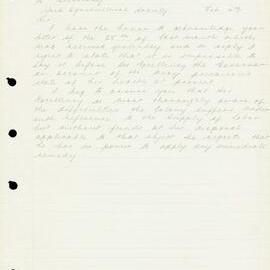 Secretary
York Agricultural Society Feb 4th
Sir
I have the honor to acknowledge your
letter of the 25th of last month which
was received yesterday and in reply I
regret to state that it is impossible to
lay it before His Excellency the Governor
on account of the very precarious
state of his health at present
I beg to assure you that His
Excellency is most thoroughly aware of
the difficulties the Colony suffers under
with reference to the supply of labor
but without funds at his disposal
applicable to that object he regrets that
he has no power to apply any immediate
remedy